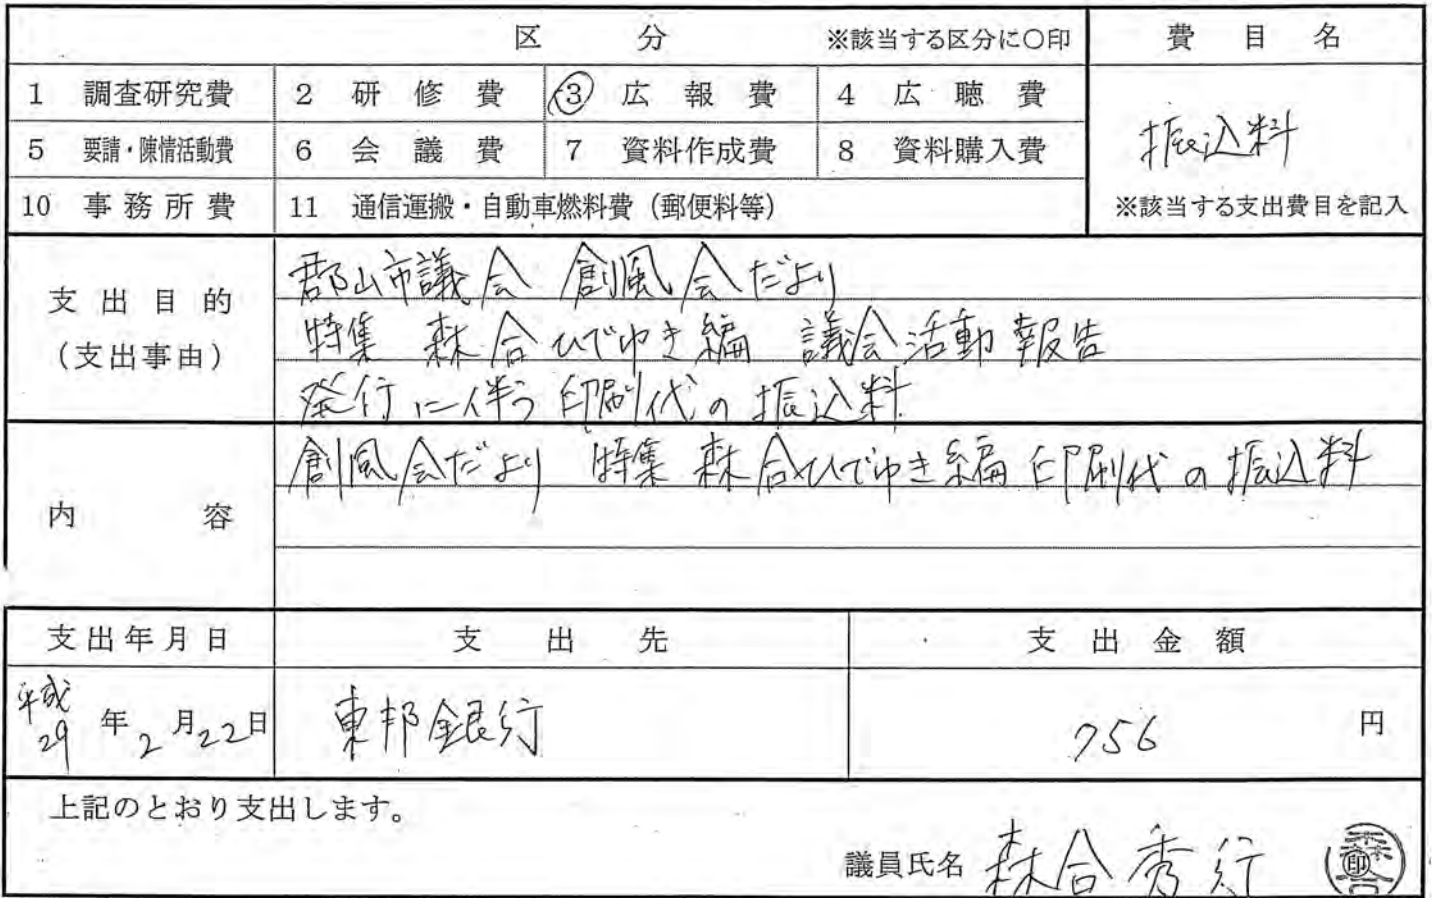 区 分 ※該当する区分に○印 費目名
1 調査研究費 2 研修費 3 広報費 4 広聴費
振込料
5 要請・陳情活動費 6 会議費 7 資料作成費 8 資料購入費
10 事務所費 11 通信運搬・自動車燃料費（郵便料等） ※該当する支出費目を記入
支出目的
（支出事由）
郡山市議会 創風会だより
特集 森合ひでゆき編 議会活動報告
発行に伴う印刷代の振込料
内容
創風会だより 特集 森合ひでゆき編 印刷代の振込料
支出年月日 支出先 支出金額
平成29年2月22日 東邦銀行 756円
上記のとおり支出します。
議員氏名 森合秀行 印